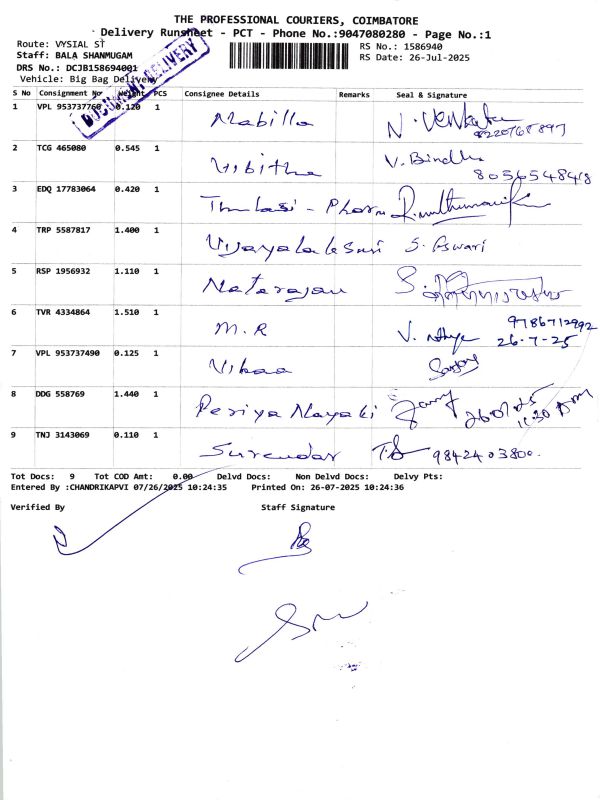 THE PROFESSIONAL COURIERS, COIMBATORE
Delivery Runsheet - PCT - Phone No.:9047080280 - Page No.:1
Route: VYSIAL ST
RS No.: 1586940
Staff: BALA SHANMUGAM
RS Date: 26-Jul-2025
DRS No.: DCJB158694001
Vehicle: Big Bag Delivery
DOCUMENT DELIVERY
S No Consignment No Weight PCS Consignee Details Remarks Seal & Signature
1 VPL 953737760 0.120 1 Mabilla N. Venkata
2 TCG 465080 0.545 1 Vibitha V. Bindhu
8056548418
3 EDQ 17783064 0.420 1 Thulasi - Pharm
4 TRP 5587817 1.400 1 Vijayalakshmi S. Eswari
5 RSP 1956932 1.110 1 Natarajan
6 TVR 4334864 1.510 1 M.R 9786712992
26-7-25
7 VPL 953737490 0.125 1 Vikaa
8 DDG 558769 1.440 1 Periya Nayaki 26/07/25
11.30 Am
9 TNJ 3143069 0.110 1 Surendar T.S 9842403800.
Tot Docs: 9 Tot COD Amt: 0.00 Delvd Docs: Non Delvd Docs: Delvy Pts:
Entered By :CHANDRIKAPVI 07/26/2025 10:24:35 Printed On: 26-07-2025 10:24:36
Verified By Staff Signature